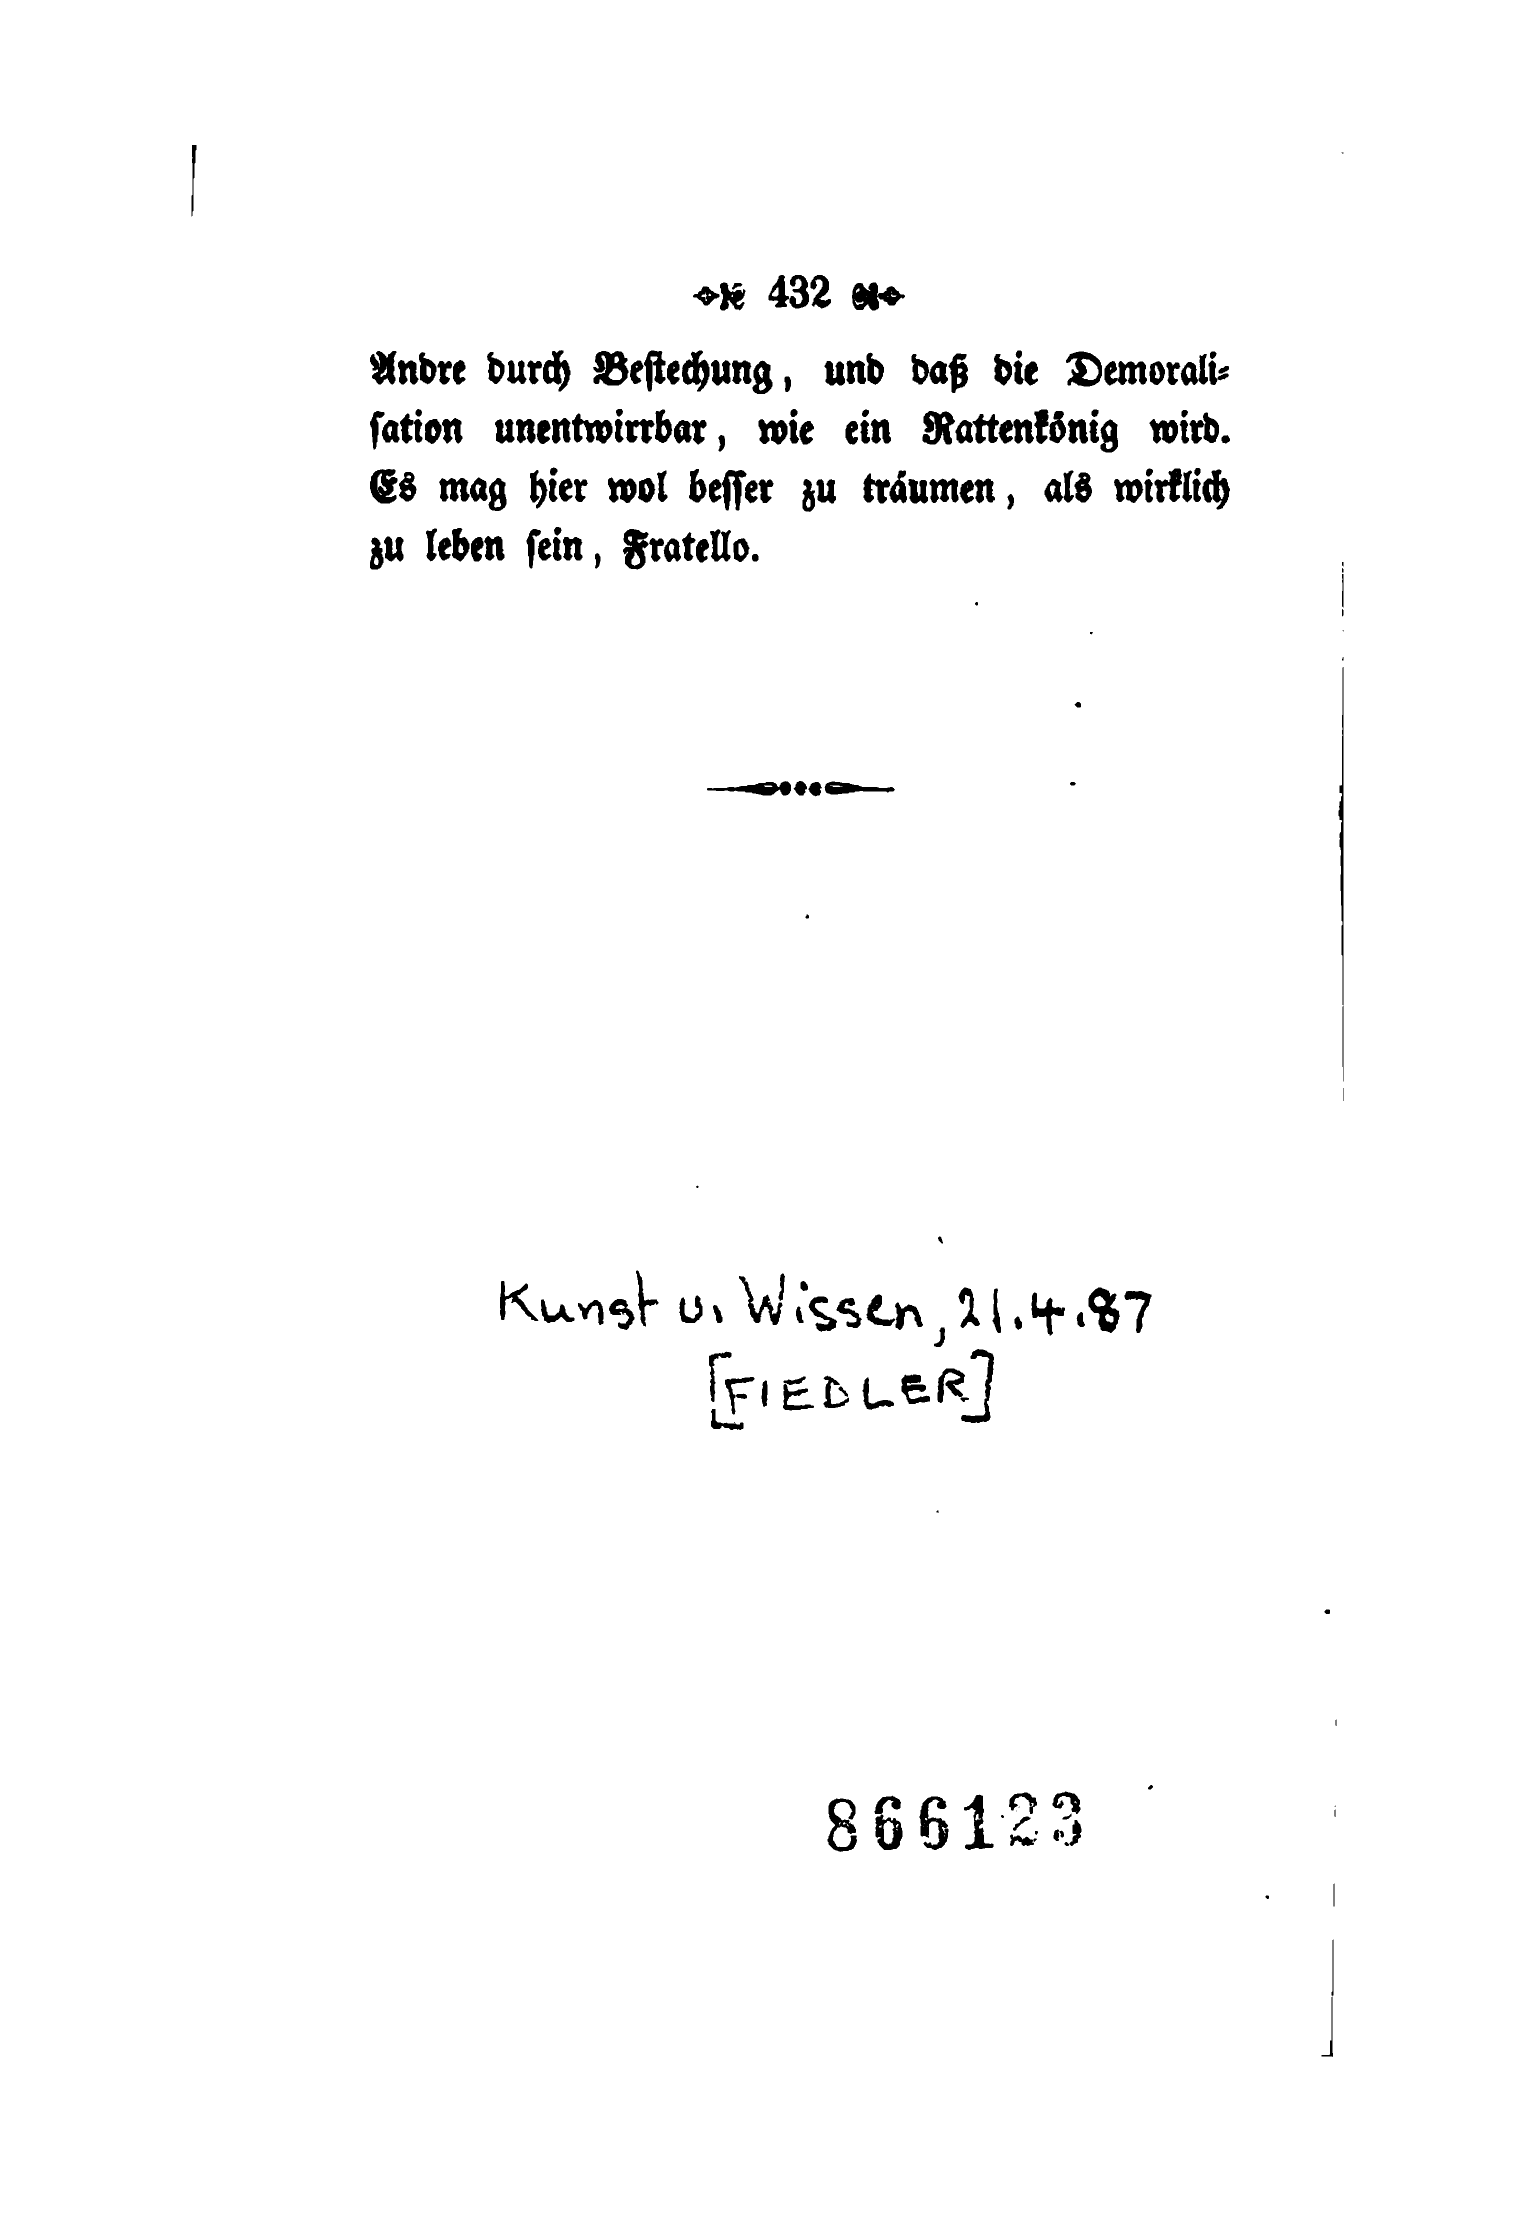 432
Andre durch Beſtechung, und daß die Demorali⸗
ſation unentwirrbar, wie ein Rattenkönig wird.
Es mag hier wol beſſer zu träumen, als wirklich
zu leben ſein, Fratello.
Kunst u. Wissen, 21.4.87
[FIEDLER]
866123